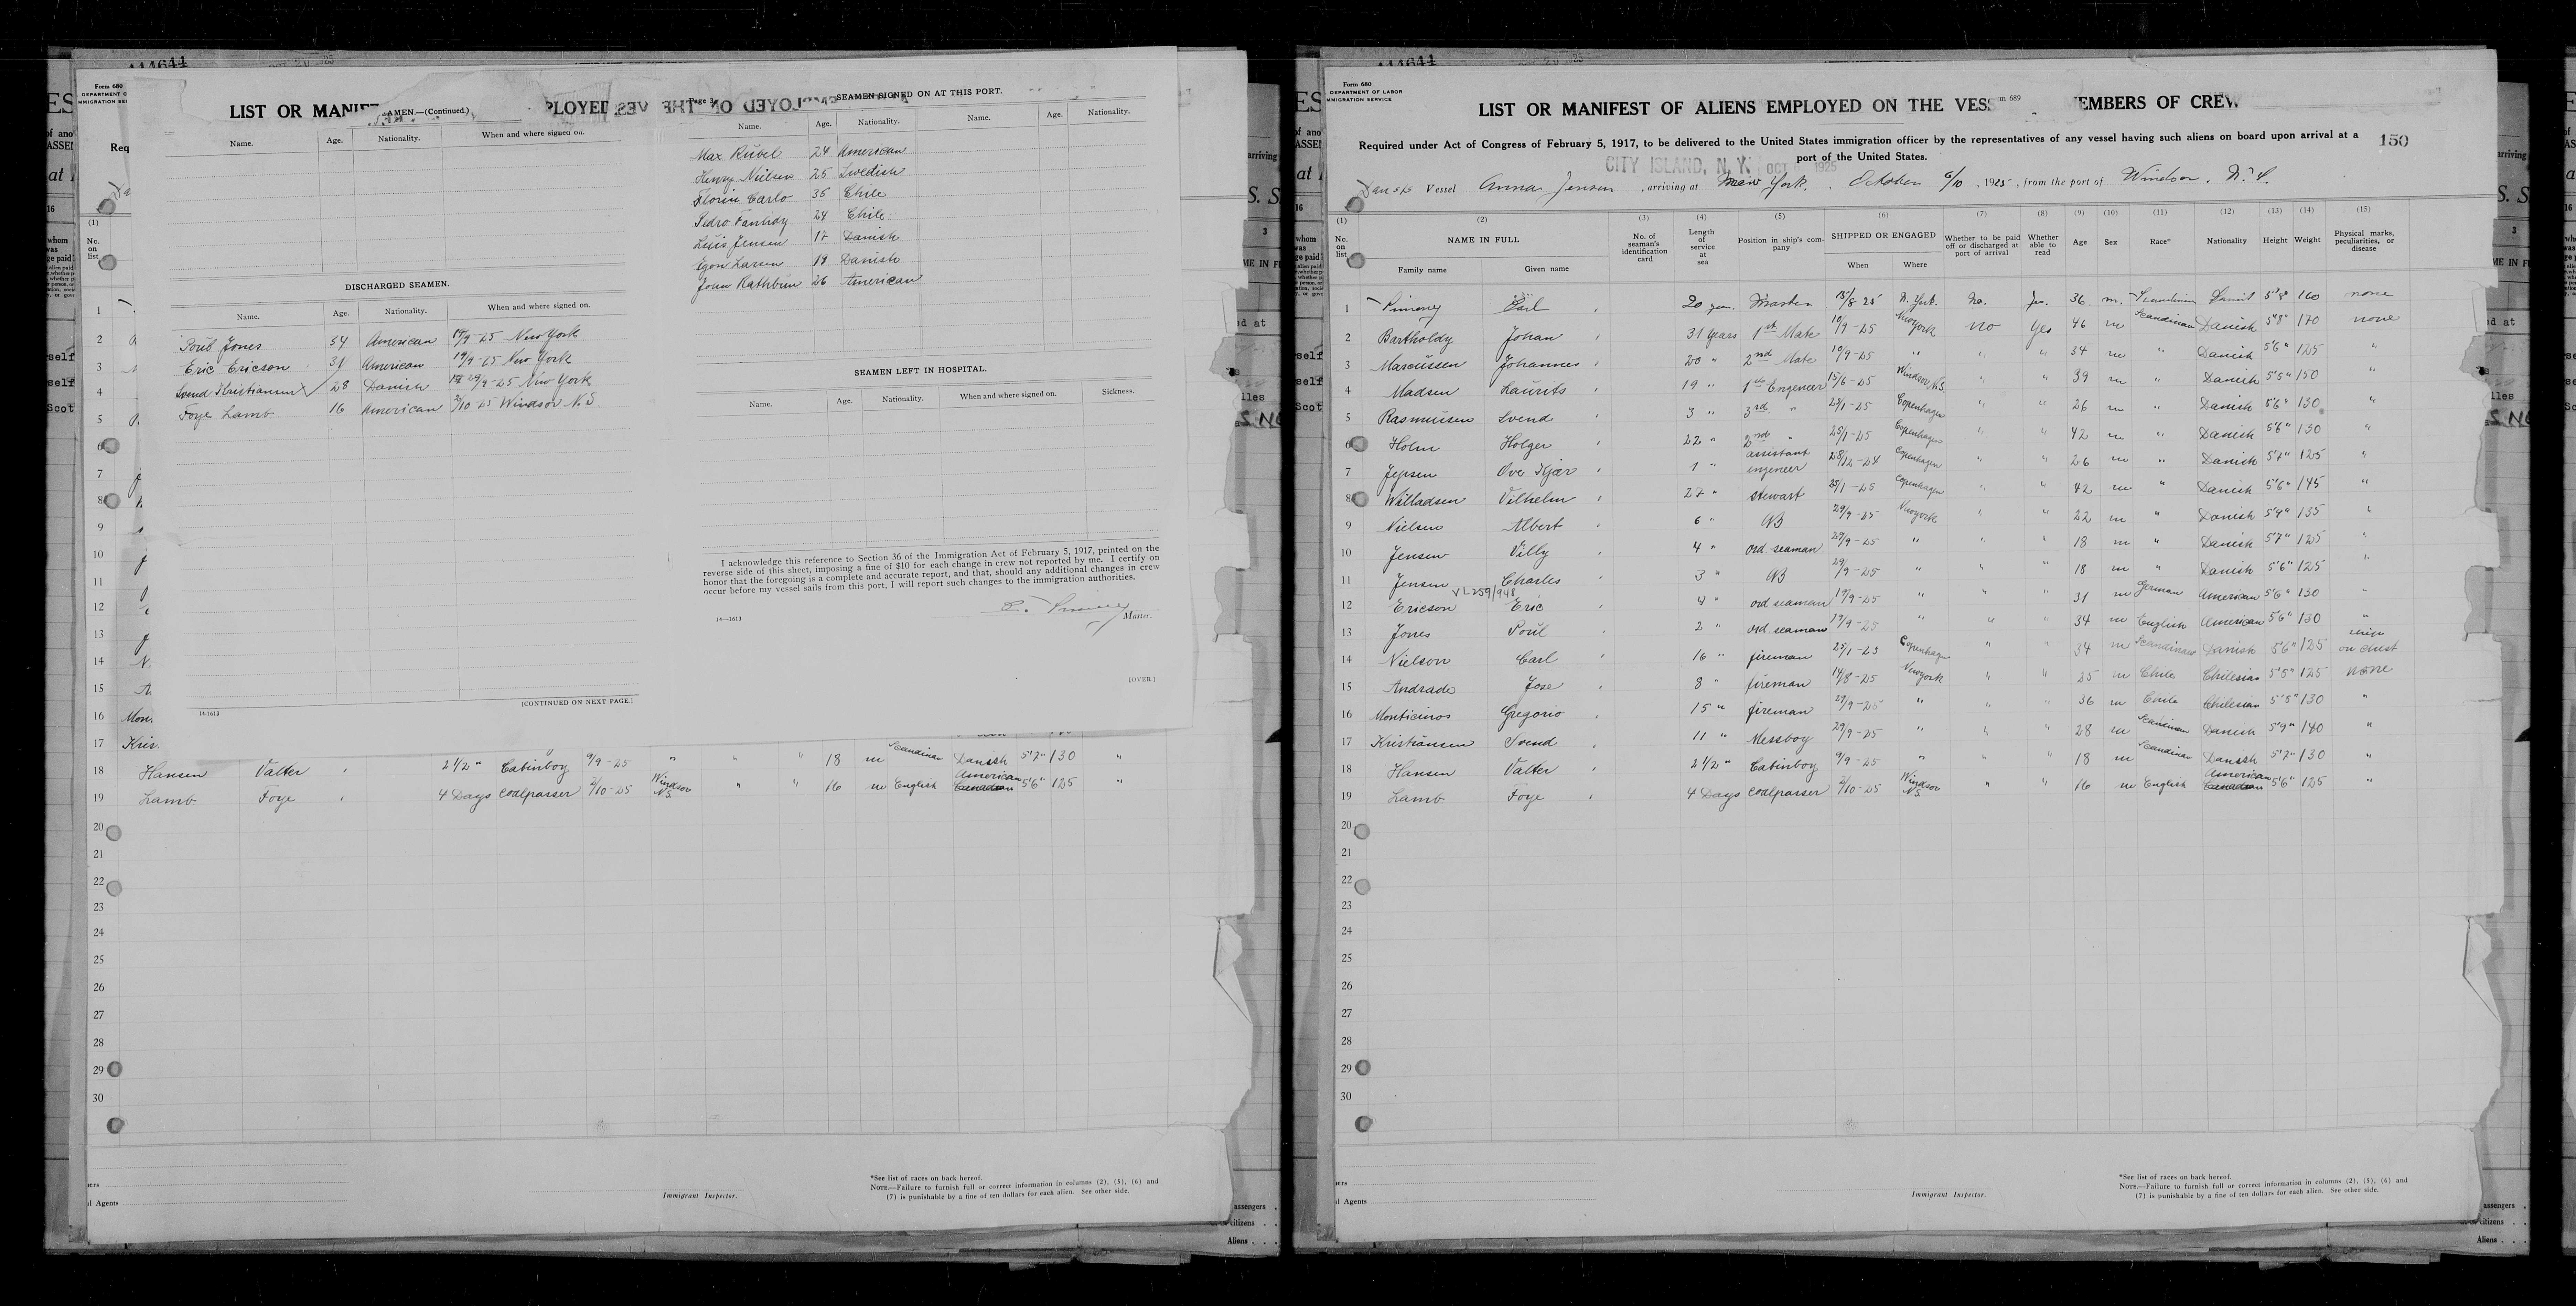 Form 680
LIST OR
SEAMEN.—(Continued.)
Name. Age. Nationality. When and where signed on.
DISCHARGED SEAMEN.
Name. Age. Nationality. When and where signed on.
Poul Jones 34 American 19/9-25 New York
Eric Ericson 31 American 19/9-25 New York
Svend Kristiansen 28 Danish 29/9-25 New York
Foye Lamb 16 American 2/10-25 Windsor N.S.
[CONTINUED ON NEXT PAGE.]
14-1613
SEAMEN SIGNED ON AT THIS PORT.
Name. Age. Nationality. Name. Age. Nationality.
Max Rubel 24 American
Henry Nielsen 25 Swedish
Florin Carlo 36 Chile
Pedro 24 Chile
Luis Jensen 17 Danish
Egon Larsen 19 Danish
John Rathbun 26 American
SEAMEN LEFT IN HOSPITAL.
Name. Age. Nationality. When and where signed on. Sickness.
I acknowledge this reference to Section 36 of the Immigration Act of February 5, 1917, printed on the
reverse side of this sheet, imposing a fine of $10 for each change in crew not reported by me. I certify on
honor that the foregoing is a complete and accurate report, and that, should any additional changes in crew
occur before my vessel sails from this port, I will report such changes to the immigration authorities.
Master.
14—1613
[OVER]
18 Hansen Valter 2 1/2 " Cabinboy 9/9-25 " " " 18 m Scandinav Danish 5'7" 130 "
19 Lamb Foye 4 Days Coalpasser 2/10-25 Windsor N.S. " " 16 m English American Canadian 5'6" 125 "
20
21
22
23
24
25
26
27
28
29
30
Immigrant Inspector.
*See list of races on back hereof.
NOTE.—Failure to furnish full or correct information in columns (2), (5), (6) and
(7) is punishable by a fine of ten dollars for each alien. See other side.
Form 680
DEPARTMENT OF LABOR
IMMIGRATION SERVICE
LIST OR MANIFEST OF ALIENS EMPLOYED ON THE VES EMBERS OF CREW
Required under Act of Congress of February 5, 1917, to be delivered to the United States immigration officer by the representatives of any vessel having such aliens on board upon arrival at a
port of the United States.
150
CITY ISLAND, N. Y. OCT 1925
Vessel Anna Jensen, arriving at New York, October 6/10, 1925, from the port of Windsor, N.S.
(1) (2) (3) (4) (5) (6) (7) (8) (9) (10) (11) (12) (13) (14) (15)
No. on list NAME IN FULL No. of seaman's identification card Length of service at sea Position in ship's company SHIPPED OR ENGAGED Whether to be paid off or discharged at port of arrival Whether able to read Age Sex Race* Nationality Height Weight Physical marks, peculiarities, or disease
Family name Given name When Where
1 Carl 20 Master 15/8 25 N. York. No. Yes. 36 m. Danish 5'8 160 none
2 Bartholdy Johan 31 Years 1st Mate 10/9-25 Newyork No Yes 46 m Scandinav Danish 5'8" 170 none
3 Marcussen Johannes 20 " 2nd Mate 10/9-25 " " " 34 m " Danish 5'6" 125 "
4 Madsen Laurits 19 " 1st Engeneer 15/6-25 Windsor N.S. " " 39 m " Danish 5'5" 150 "
5 Rasmussen Svend 3 " 3rd " 25/1-25 Copenhagen " " 26 m " Danish 5'6" 130 "
6 Holm Holger 22 " 2nd " 25/1-25 Copenhagen " " 42 m " Danish 5'6" 130 "
7 Jepsen Ove Kjær 1 " assistant engeneer 28/12-24 Copenhagen " " 26 m " Danish 5'7" 125 "
8 Willadsen Vilhelm 27 " stewart 25/1-25 Copenhagen " " 42 m " Danish 5'6" 145 "
9 Nielsen Albert 6 " AB 29/9-25 Newyork " " 22 m " Danish 5'4" 135 "
10 Jensen Villy 4 " ord. seaman 29/9-25 " " " 18 m " Danish 5'7" 125 "
11 Jensen Charles 3 " AB 29/9-25 " " " 18 m " Danish 5'6" 125 "
VL259/948
12 Ericson Eric 4 " ord seaman 19/9-25 " " " 31 m German American 5'6" 130 "
13 Jones Poul 2 " ord. seaman 19/9-25 " " " 34 m English American 5'6" 130 "
14 Nielson Carl 16 " fireman 25/1-25 Copenhagen " " 34 m Scandinav Danish 5'6" 125 on chest
15 Andrade Jose 8 " fireman 14/8-25 Newyork " " 25 m Chile Chilesian 5'5" 125 none
16 Monticinos Gregorio 15 " fireman 29/9-25 " " " 36 m Chile Chilesian 5'5" 130 "
17 Kristiansen Svend 11 " Messboy 29/9-25 " " " 28 m Scandinav Danish 5'9" 140 "
18 Hansen Valter 2 1/2 " Cabinboy 9/9-25 " " " 18 m Scandinav Danish 5'7" 130 "
19 Lamb Foye 4 Days Coalpasser 2/10-25 Windsor N.S. " " 16 m English American Canadian 5'6" 125 "
20
21
22
23
24
25
26
27
28
29
30
Immigrant Inspector.
*See list of races on back hereof.
NOTE.—Failure to furnish full or correct information in columns (2), (5), (6) and
(7) is punishable by a fine of ten dollars for each alien. See other side.